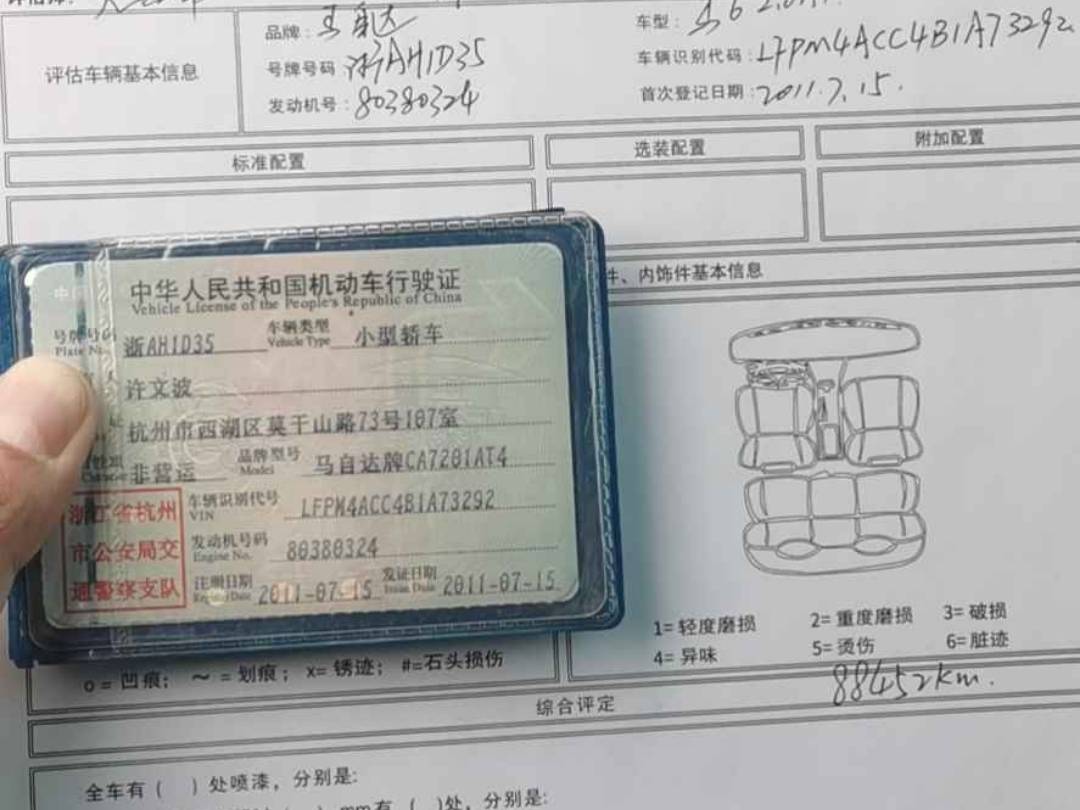 品牌：马自达
车型：马6 2.0
评估车辆基本信息
号牌号码 浙AH1D35
车辆识别代码：LFPM4ACC4B1A73292
发动机号：80380324
首次登记日期：2011.7.15.
标准配置
选装配置
附加配置
件、内饰件基本信息
中华人民共和国机动车行驶证
Vehicle License of the People's Republic of China
号牌号码 浙AH1D35 车辆类型 小型轿车
Plate No. Vehicle Type
人 许文波
杭州市西湖区莫干山路73号107室
非营运 品牌型号 马自达牌CA7201AT4
Model
浙江省杭州
市公安局交
通警察支队
车辆识别代号 LFPM4ACC4B1A73292
VIN
发动机号码 80380324
Engine No.
注册日期 2011-07-15 发证日期 2011-07-15
Register Date Issue Date
1= 轻度磨损 2= 重度磨损 3= 破损
4= 异味 5= 烫伤 6= 脏迹
o = 凹痕； ～ = 划痕； x= 锈迹； #=石头损伤
88452km.
综合评定
全车有（ ）处喷漆，分别是:
mm有（ ）处，分别是: